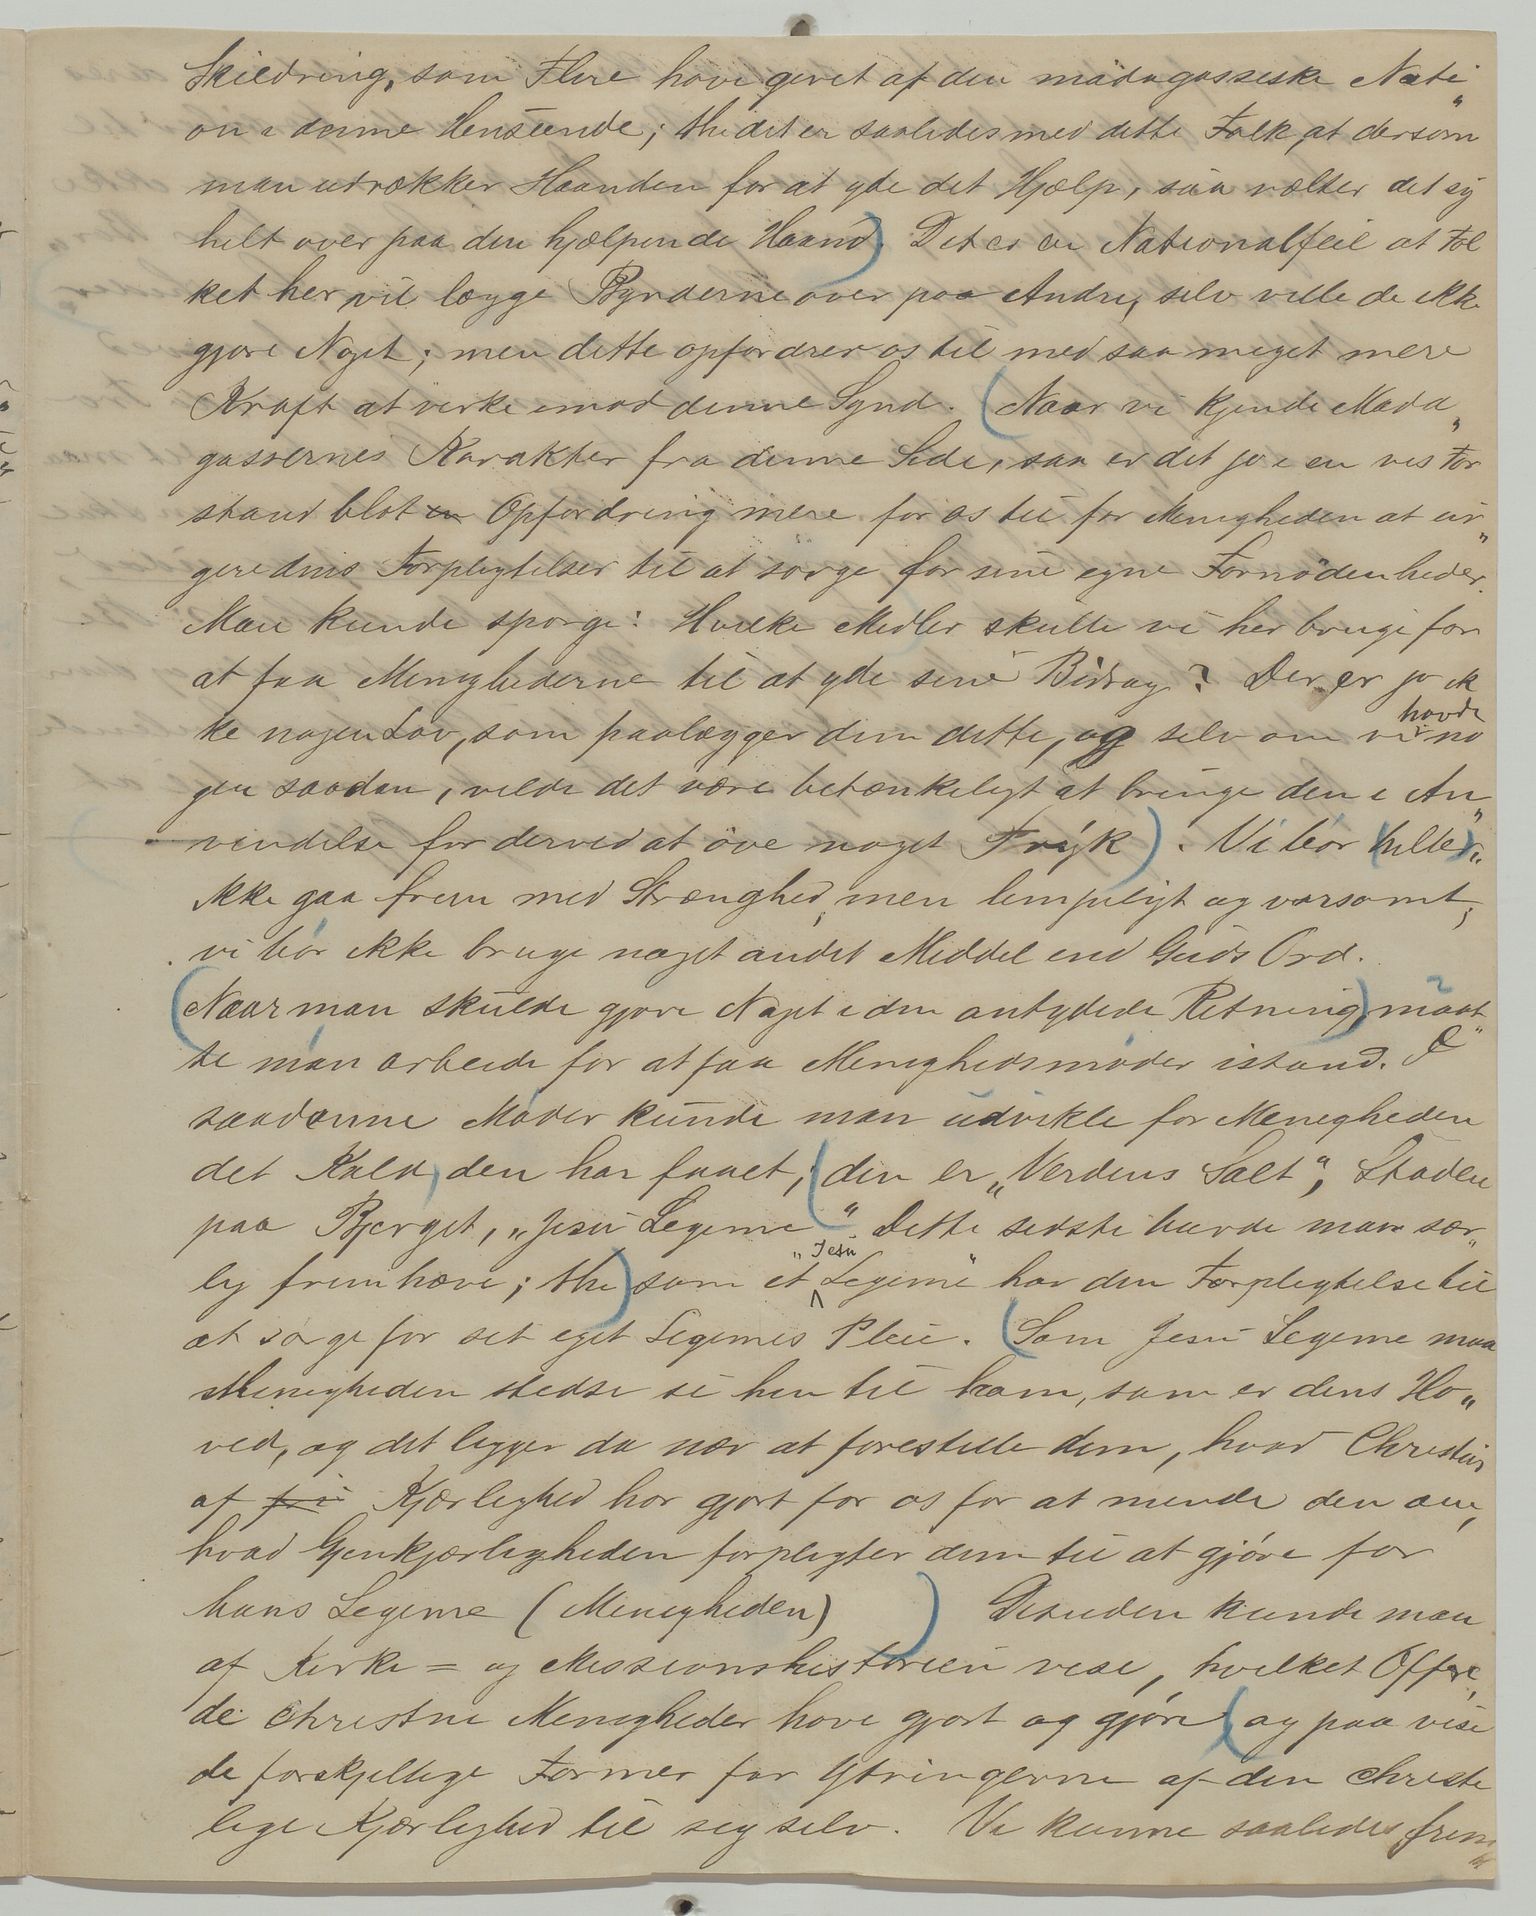 Skildring, som Flere have givet af den madagassiske Nati„
on i denne Henseende; thi det er saaledes med dette Folk, at dersom
man udrækker Haanden for at yde det Hjælp, saa vælter det sig
helt over paa den hjælpende Haand) Det er en Nationalfeil at Fol
ket her vil lægge Byrderne over paa Andre, selv ville de ikke
gjøre Noget; men dette opfordrer os til med saa meget mere
Kraft at virke imod denne Synd. (Naar vi kjende Mada„
gassernes Karakter fra denne Side, saa er det jo i en vis For
stand blot en Opfordring mere for os til for Menigheden at ur„
gere dens Forpligtelser til at sørge for sine egne Fornödenheder.
Man kunde spørge: Hvilke Midler skulle vi her bruge for
at faa Menighederne til at yde sine Bidrag? Der er jo ik
ke nogen Lov, som paalægger dem dette, og selv om vi havde no
gen saadan, vilde det være betænkeligt at bringe den i An„
vendelse for derved at öve noget Tryk). Vi bör (heller)„
ikke gaa frem med Strænghed, men lempeligt og varsomt,
vi bör ikke bruge noget andet Middel end Guds Ord.
(Naar man skulde gjøre Noget i den antydede Retning) maat„
te man arbeide for at faa Menighedsmøder istand. I
saadanne Møder kunde man udvikle for Menigheden
det Kald, den har faaet, (den er „Verdens Salt“, Staden
paa Bjerget, „Jesu Legeme“ Dette sidste burde man sær„
lig fremhæve; thi) som et „Jesu Legeme“ har den Forpligtelse til
at sørge for sit eget Legemes Pleie. (Som Jesu Legeme maa
Menigheden stedse se hen til ham, som er dens Ho„
ved, og det ligger da nær at forestille dem, hvad Christus
af Kjærlighed har gjort for os for at minde den om,
hvad Gjenkjærligheden forpligter dem til at gjöre for
hans Legeme (Menigheden) ) Desuden kunde man
af Kirke= og Missionshistorien vise, hvilket Offere,
de christne Menigheder have gjort og gjöre (og paa vise
de forskjellige Former for Ytringerne af den christe
lige Kjærlighed til sig selv. Vi kunne saaledes frem„